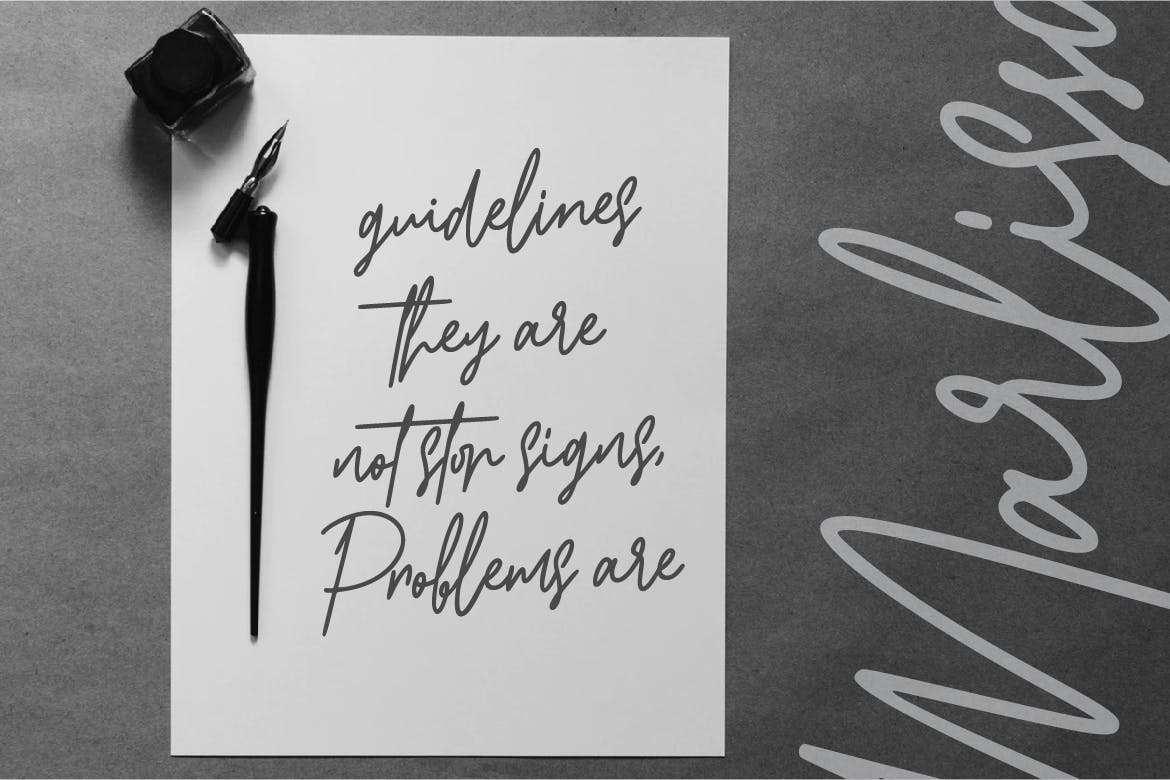 guidelines
they are
not stop signs,
Problems are
Marlissa